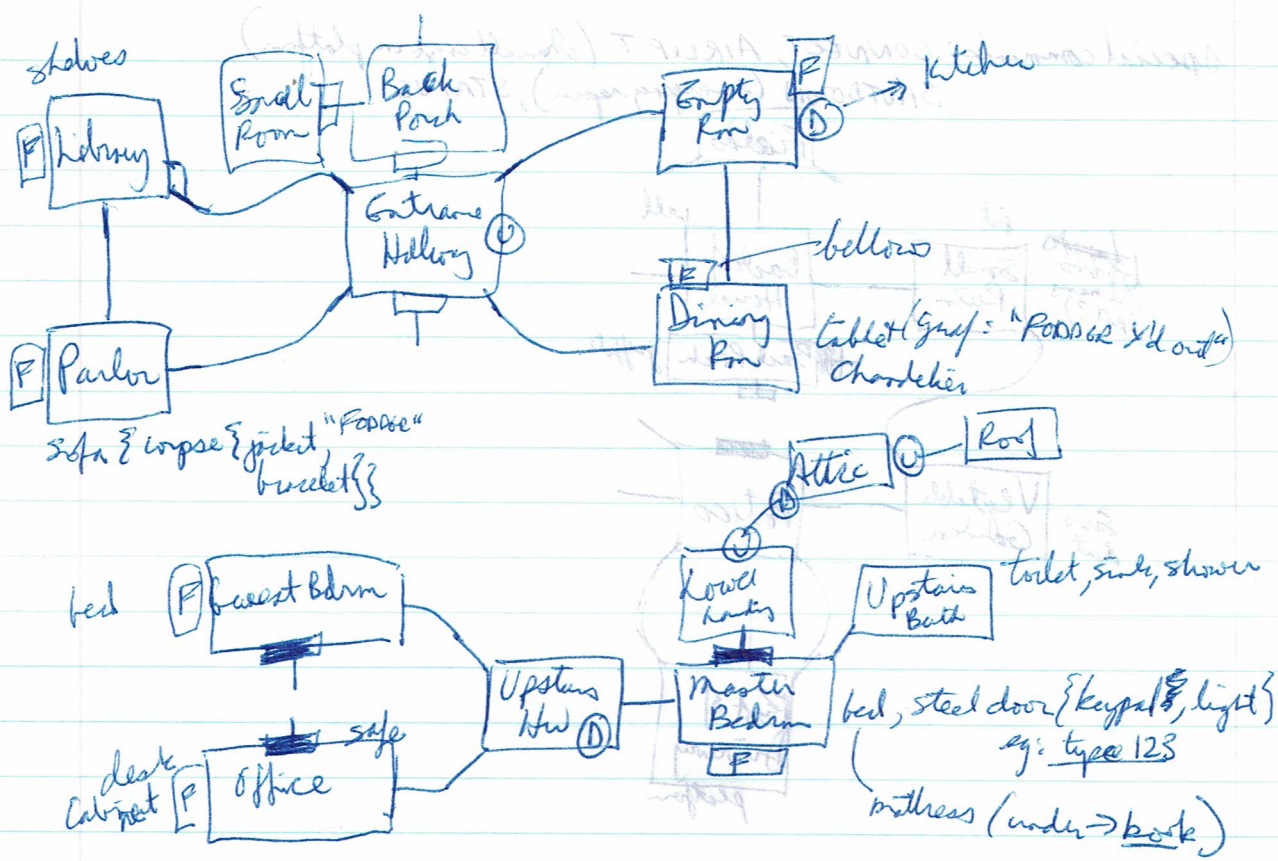 shelves
F
Library
Small
Room
Back
Porch
Empty
Rm
F
D
Kitchen
Entrance
Hallway
U
bellows
F
Dining
Rm
tablet (graf: "FODDER X'd out")
Chandelier
F
Parlor
sofa { corpse { jacket, "FODDER"
bracelet}}
Attic
U
Roof
D
U
Lower
Landing
Upstairs
Bath
toilet, sink, shower
bed
F
Guest Bdrm
Upstairs
Hw
D
Master
Bedrm
F
bed, steel door {keypad, light}
eg: type 123
mattress (under → book)
safe
desk
Cabinet
F
Office